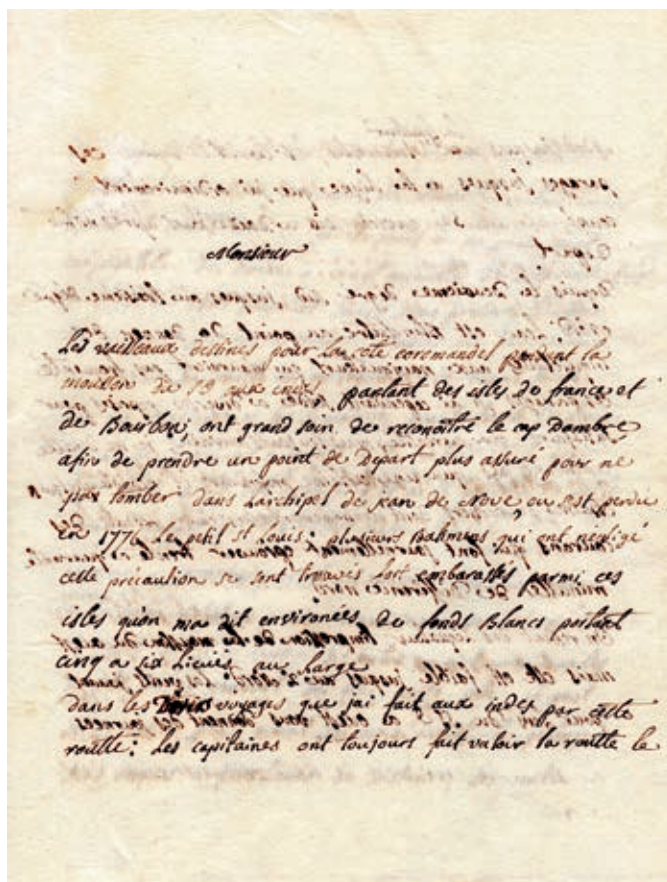 Monsieur
Les vaisseaux destines pour la cote coremandel pendant la
mousson de so aux indes, partant des isles de france et
de Bourbon, ont grand soin de reconoitre le cap Dambre
afin de prendre un point de Depart plus assuré pour ne
pas tomber dans Larchipel de jean de Nove ou s'est perdu
En 1776 Le petit st Louis; plusieurs Batimens qui ont negligé
cette précaution se sont trouvés fort embarassés parmi ces
isles qu'on ma dit environées de fonds Blancs portant
cinq a six Lieuës au Large
dans les voyages que jai fait aux indes par cette
routte; Les capitaines ont toujours fait valoir la routte le